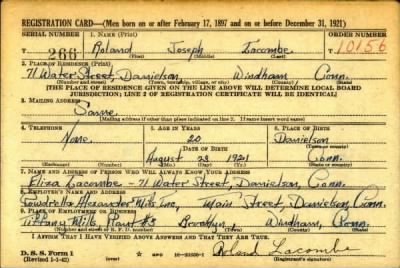 REGISTRATION CARD—(Men born on or after February 17, 1897 and on or before December 31, 1921)
SERIAL NUMBER 1. NAME (Print) ORDER NUMBER
T 266 Roland Joseph Lacombe 10156
(First) (Middle) (Last)
2. PLACE OF RESIDENCE (Print)
71 Water Street, Danielson, Windham Conn.
(Number and street) (Town, township, village, or city) (County) (State)
[THE PLACE OF RESIDENCE GIVEN ON THE LINE ABOVE WILL DETERMINE LOCAL BOARD
JURISDICTION; LINE 2 OF REGISTRATION CERTIFICATE WILL BE IDENTICAL]
3. MAILING ADDRESS
Same
[Mailing address if other than place indicated on line 2. If same insert word same]
4. TELEPHONE 5. AGE IN YEARS 6. PLACE OF BIRTH
None 20 Danielson
DATE OF BIRTH (Town or county)
August 23 1921 Conn.
(Exchange) (Number) (Mo.) (Day) (Yr.) (State or country)
7. NAME AND ADDRESS OF PERSON WHO WILL ALWAYS KNOW YOUR ADDRESS
Eliza Lacombe - 71 Water Street, Danielson, Conn.
8. EMPLOYER'S NAME AND ADDRESS
Powdrell & Alexander Mills Inc, Main Street, Danielson, Conn.
9. PLACE OF EMPLOYMENT OR BUSINESS
Mills Plant #3 Brooklyn Windham, Conn.
(Number and street or R. F. D. number) (Town) (County) (State)
I AFFIRM THAT I HAVE VERIFIED ABOVE ANSWERS AND THAT THEY ARE TRUE.
D. S. S. Form 1 Roland Lacombe
(Revised 1-1-42) GPO